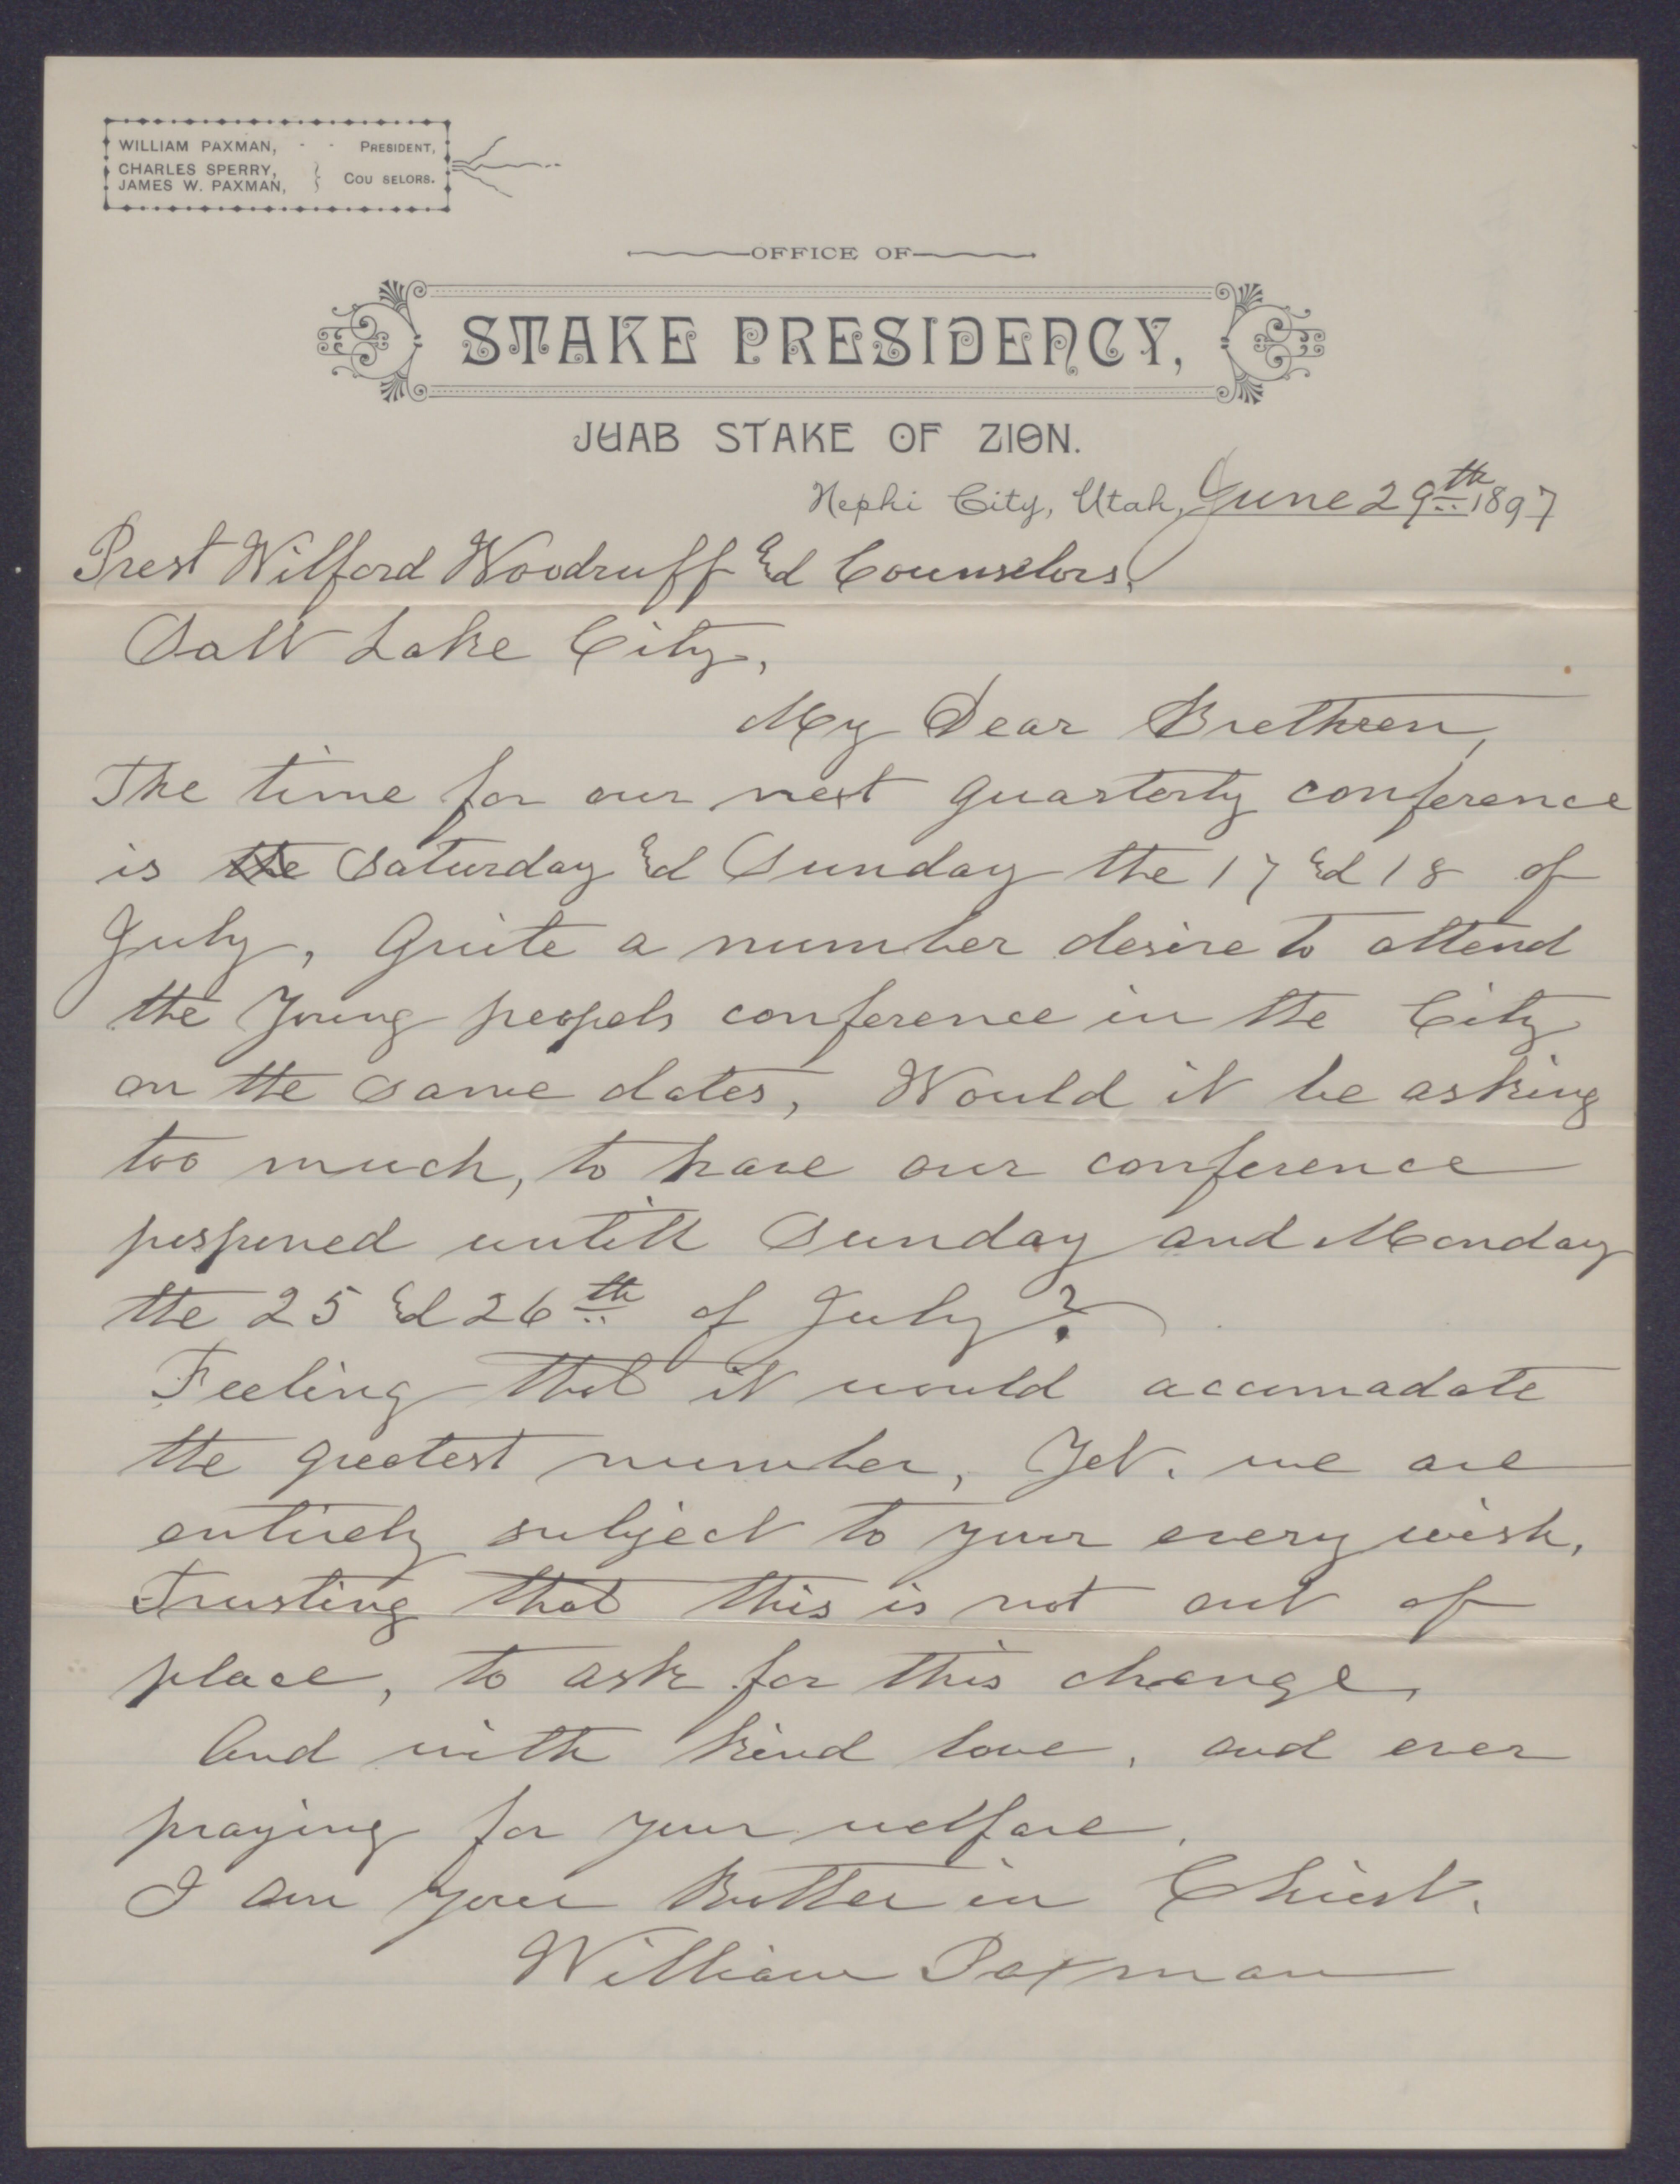 WILLIAM PAXMAN, - - PRESIDENT,
CHARLES SPERRY,
JAMES W. PAXMAN, } COU SELORS.
OFFICE OF
STAKE PRESIDENCY,
JUAB STAKE OF ZION.
Nephi City, Utah, June 29th 1897
Prest Wilford Woodruff &d Counselors,
Salt Lake City,
My Dear Brethren,
The time for our next quarterly conference
is the Saturday &d Sunday the 17 &d 18 of
July, Quite a number desire to attend
the Young peopels conference in the City
on the same dates, Would it be asking
too much, to have our conference
pospened untill Sunday and Monday
the 25 &d 26th of July?
Feeling that it would accomadate
the greatest number, Yet. we are
entirely subject to your every wish,
Trusting that this is not out of
place, to ask for this change,
And with kind love, and ever
praying for your welfare,
I am your Brother in Christ.
William Paxman